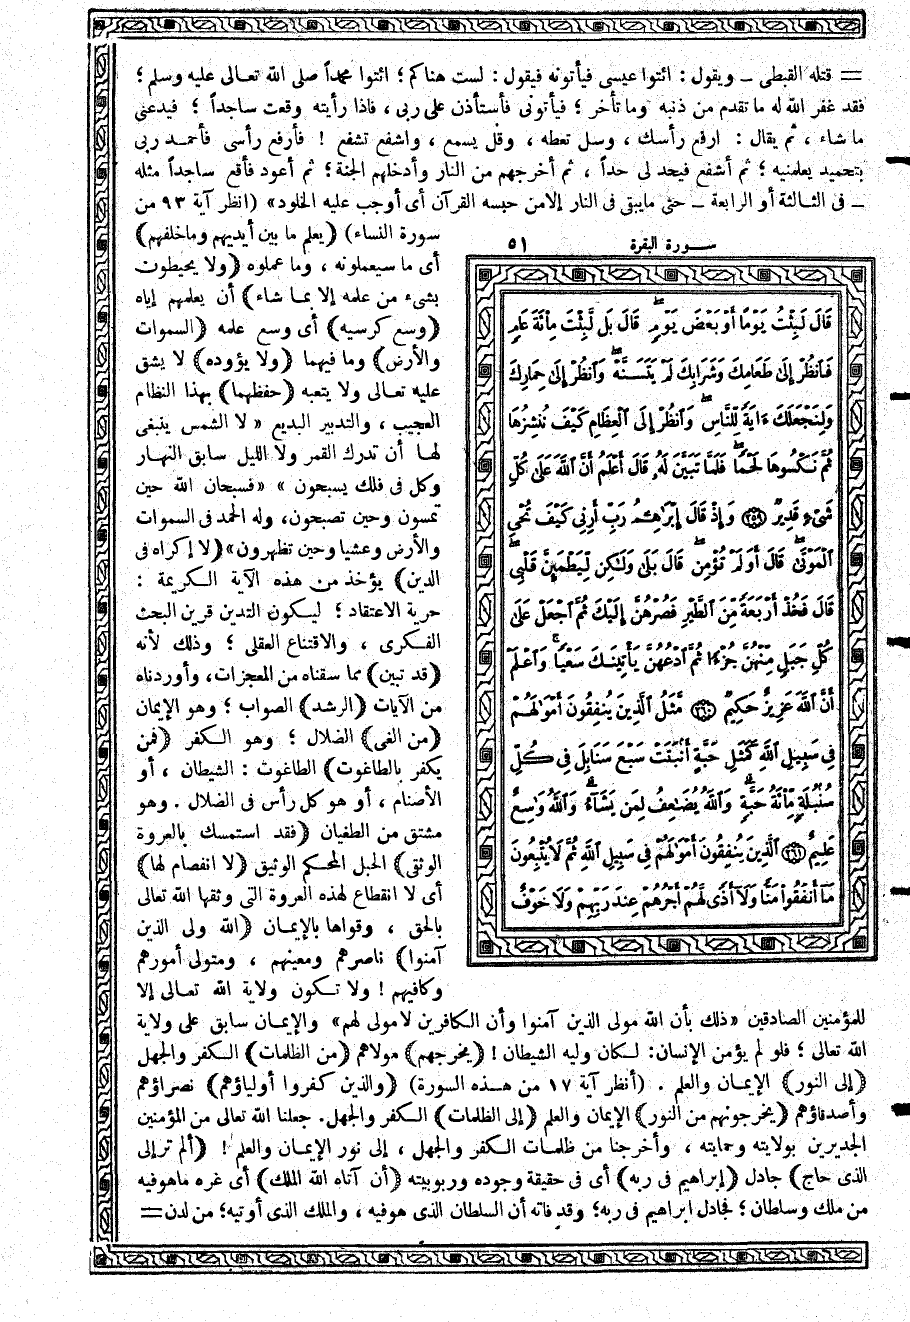 = قتله القبطى ــ ويقول : ائتوا عيسى فيأتونه فيقول : لست هناكم ؛ ائتوا محمداً صلى الله تعالى عليه وسلم ؛
فقد غفر الله له ما تقدم من ذنبه وما تأخر ؛ فيأتونى فأستأذن على ربى ، فاذا رأيته وقعت ساجداً ؛ فيدعنى
ما شاء ، ثم يقال : ارفع رأسك ، وسل تعطه ، وقل يسمع ، واشفع تشفع ! فأرفع رأسى فأحمد ربى
بتحميد يعلمنيه ؛ ثم أشفع فيحد لى حداً ، ثم أخرجهم من النار وأدخلهم الجنة ؛ ثم أعود فأقع ساجداً مثله
ــ فى الثالثة أو الرابعة ــ حتى مايبقى فى النار إلا من حبسه القرآن أى أوجب عليه الخلود» (انظر آية ٩٣ من
سورة النساء) (يعلم ما بين أيديهم وماخلفهم)
أى ما سيعملونه ، وما عملوه (ولا يحيطون
بشىء من علمه إلا بما شاء) أن يعلمهم إياه
(وسع كرسيه) أى وسع علمه (السموات
والأرض) وما فيهما (ولا يؤوده) لا يشق
عليه تعالى ولا يتعبه (حفظهما) بهذا النظام
العجيب ، والتدبير البديع « لا الشمس ينبغى
لها أن تدرك القمر ولا الليل سابق النهار
وكل فى فلك يسبحون » «فسبحان الله حين
تمسون وحين تصبحون، وله الحمد فى السموات
والأرض وعشيا وحين تظهرون»(لا إكراه فى
الدين) يؤخذ من هذه الآية الكريمة :
حرية الاعتقاد ؛ ليكون التدين قرين البحث
الفكرى ، والاقتناع العقلى ؛ وذلك لأنه
(قد تبين) مما سقناه من المعجزات، وأوردناه
من الآيات (الرشد) الصواب ؛ وهو الإيمان
(من الغى) الضلال ؛ وهو الكفر (فمن
يكفر بالطاغوت) الطاغوت : الشيطان ، أو
الأصنام ، أو هو كل رأس فى الضلال . وهو
مشتق من الطغيان (فقد استمسك بالعروة
الوثقى) الحبل المحكم الوثيق (لا انفصام لها)
أى لا انقطاع لهذه العروة التى وثقها الله تعالى
بالحق ، وقواها بالإيمان (الله ولى الذين
آمنوا) ناصرهم ومعينهم ، ومتولى أمورهم
وكافيهم ! ولا تكون ولاية الله تعالى إلا
سورة البقرة ٥١
قَالَ لَبِثْتُ يَوْمًا أَوْ بَعْضَ يَوْمٍ قَالَ بَل لَّبِثْتَ مِائَةَ عَامٍ
فَانظُرْ إِلَى طَعَامِكَ وَشَرَابِكَ لَمْ يَتَسَنَّهْ وَانظُرْ إِلَى حِمَارِكَ
وَلِنَجْعَلَكَ ءَايَةً لِّلنَّاسِ وَانظُرْ إِلَى الْعِظَامِ كَيْفَ نُنشِزُهَا
ثُمَّ نَكْسُوهَا لَحْمًا فَلَمَّا تَبَيَّنَ لَهُ قَالَ أَعْلَمُ أَنَّ اللَّهَ عَلَى كُلِّ
شَىْءٍ قَدِيرٌ ﴿٢٥٩﴾ وَإِذْ قَالَ إِبْرَاهِـمُ رَبِّ أَرِنِى كَيْفَ تُحْىِ
الْمَوْتَى قَالَ أَوَلَمْ تُؤْمِن قَالَ بَلَى وَلَكِن لِّيَطْمَئِنَّ قَلْبِى
قَالَ فَخُذْ أَرْبَعَةً مِّنَ الطَّيْرِ فَصُرْهُنَّ إِلَيْكَ ثُمَّ اجْعَلْ عَلَى
كُلِّ جَبَلٍ مِّنْهُنَّ جُزْءًا ثُمَّ ادْعُهُنَّ يَأْتِينَكَ سَعْيًا وَاعْلَمْ
أَنَّ اللَّهَ عَزِيزٌ حَكِيمٌ ﴿٢٦٠﴾ مَّثَلُ الَّذِينَ يُنفِقُونَ أَمْوَالَهُمْ
فِى سَبِيلِ اللَّهِ كَمَثَلِ حَبَّةٍ أَنبَتَتْ سَبْعَ سَنَابِلَ فِى كُلِّ
سُنبُلَةٍ مِّائَةُ حَبَّةٍ وَاللَّهُ يُضَاعِفُ لِمَن يَشَاءُ وَاللَّهُ وَاسِعٌ
عَلِيمٌ ﴿٢٦١﴾ الَّذِينَ يُنفِقُونَ أَمْوَالَهُمْ فِى سَبِيلِ اللَّهِ ثُمَّ لَا يُتْبِعُونَ
مَا أَنفَقُوا مَنًّا وَلَا أَذًى لَّهُمْ أَجْرُهُمْ عِندَ رَبِّهِمْ وَلَا خَوْفٌ
للمؤمنين الصادقين «ذلك بأن الله مولى الذين آمنوا وأن الكافرين لا مولى لهم» والإيمان سابق على ولاية
الله تعالى ؛ فلو لم يؤمن الإنسان: لكان وليه الشيطان ! (يخرجهم) مولاهم (من الظلمات) الكفر والجهل
(إلى النور) الإيمان والعلم . (أنظر آية ١٧ من هذه السورة) (والذين كفروا أولياؤهم) نصراؤهم
وأصدقاؤهم (يخرجونهم من النور) الإيمان والعلم (إلى الظلمات) الكفر والجهل. جعلنا الله تعالى من المؤمنين
الجديرين بولايته وحمايته ، وأخرجنا من ظلمات الكفر والجهل ، إلى نور الإيمان والعلم ! (ألم تر إلى
الذى حاج) جادل (إبراهيم فى ربه) أى فى حقيقة وجوده وربوبيته (أن آتاه الله الملك) أى غره ماهوفيه
من ملك وسلطان ؛ فجادل ابراهيم فى ربه؛ وقد فاته أن السلطان الذى هو فيه ، والملك الذى أوتيه؛ من لدن =